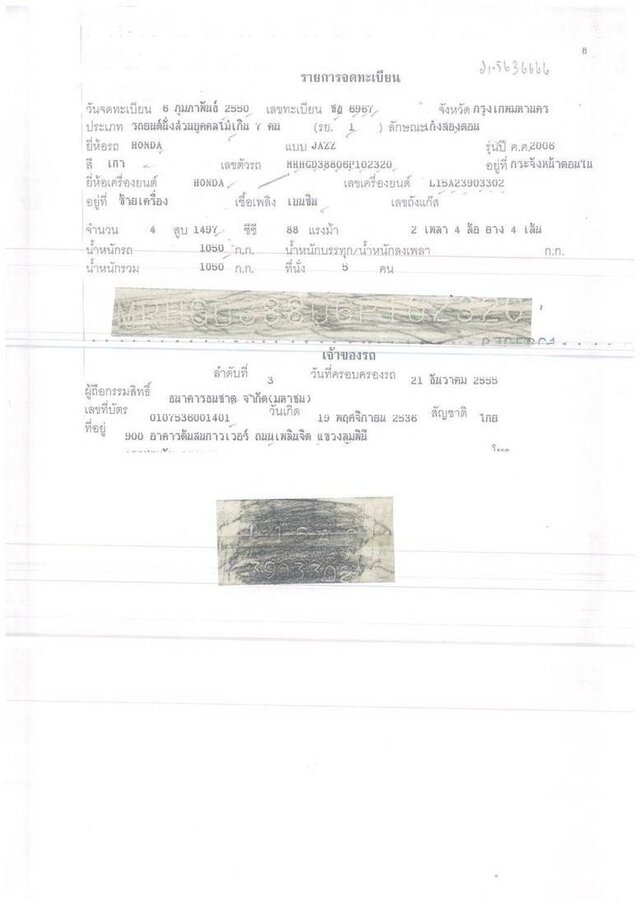 8
รายการจดทะเบียน
วันจดทะเบียน 6 กุมภาพันธ์ 2550 เลขทะเบียน 6967 จังหวัด กรุงเทพมหานคร
ประเภท รถยนต์นั่งส่วนบุคคลไม่เกิน 7 คน (รย. 1 ) ลักษณะ เก๋งสองตอน
ยี่ห้อรถ HONDA แบบ JAZZ รุ่นปี ค.ศ. 2006
สี เทา เลขตัวรถ อยู่ที่ กระจังหน้าตอนใน
ยี่ห้อเครื่องยนต์ HONDA เลขเครื่องยนต์ L15A23903302
อยู่ที่ ซ้ายเครื่อง เชื้อเพลิง เบนซิน เลขถังแก๊ส
จำนวน 4 สูบ 1497 ซีซี 88 แรงม้า 2 เพลา 4 ล้อ ยาง 4 เส้น
น้ำหนักรถ 1050 ก.ก. น้ำหนักบรรทุก/น้ำหนักลงเพลา ก.ก.
น้ำหนักรวม 1050 ก.ก. ที่นั่ง 5 คน
เจ้าของรถ
ลำดับที่ 3 วันที่ครอบครองรถ 21 ธันวาคม 2555
ผู้ถือกรรมสิทธิ์ ธนาคารธนชาต จำกัด(มหาชน)
เลขที่บัตร 0107536001401 วันเกิด 19 พฤศจิกายน 2536 สัญชาติ ไทย
ที่อยู่ 900 อาคารต้นสนทาวเวอร์ ถนนเพลินจิต แขวงลุมพินี